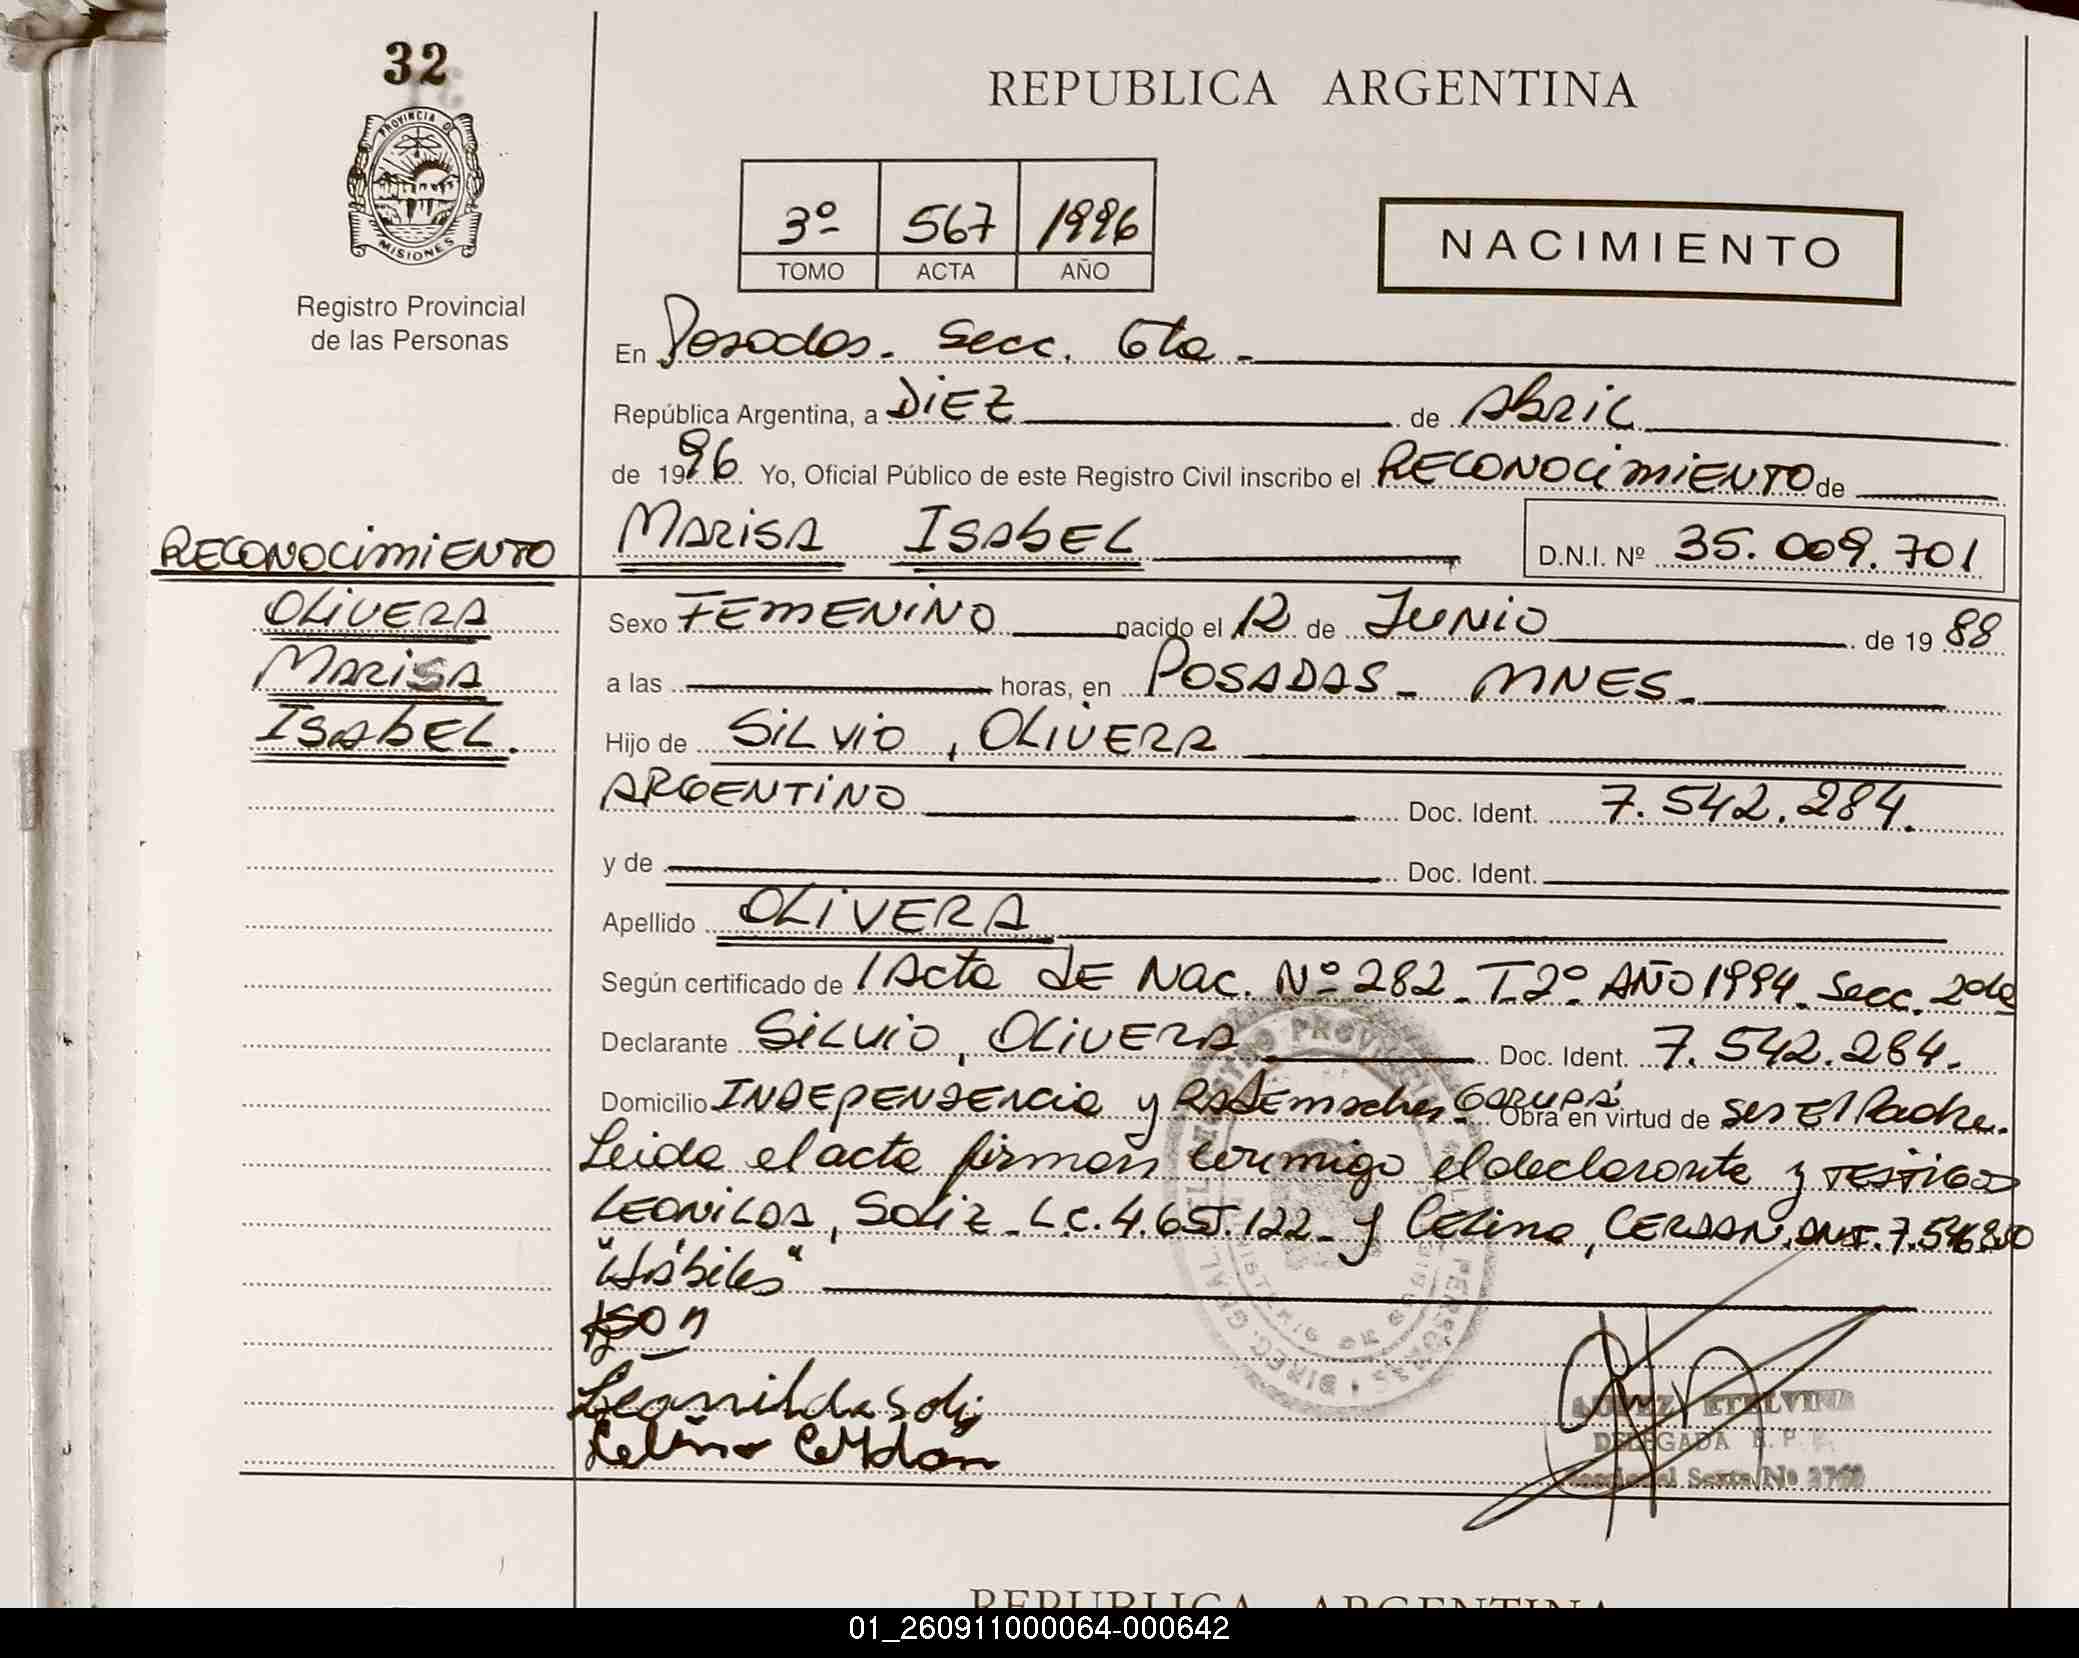 32
PROVINCIA D
MISIONES
Registro Provincial
de las Personas
REPUBLICA ARGENTINA
3º 567 1996
TOMO ACTA AÑO
NACIMIENTO
En Posadas. Secc. 6ta -
República Argentina, a DIEZ de Abril
de 1996 Yo, Oficial Público de este Registro Civil inscribo el RECONOCIMIENTO de
MARISA ISABEL D.N.I. Nº 35.009.701
RECONOCIMIENTO
OLIVERA
MARISA
ISABEL.
Sexo FEMENINO nacido el 12 de JUNIO de 1988
a las horas, en POSADAS - MNES.
Hijo de SILVIO, OLIVERA
ARGENTINO Doc. Ident. 7.542.284.
y de Doc. Ident.
Apellido OLIVERA
Según certificado de 1 Acta de Nac. Nº 282 - T.2º AÑO 1994 - Secc. 2da
Declarante SILVIO, OLIVERA Doc. Ident. 7.542.284.
Domicilio INDEPENDENCIA y GARUPÁ Obra en virtud de ser El Padre.
Leida el acta firman conmigo el declarante y TESTIGOS
LEONILDA, Soliz - L.C. 4.655.122 - y Celino, CERDAN, DNI. 7.546.850
"Hábiles"
Leonilda Soliz
Celino Cerdan
LOPEZ ETELVINA
DELEGADA R. P.
Seccional Sexta Nº 2760
REPUBLICA ARGENTINA
01_260911000064-000642